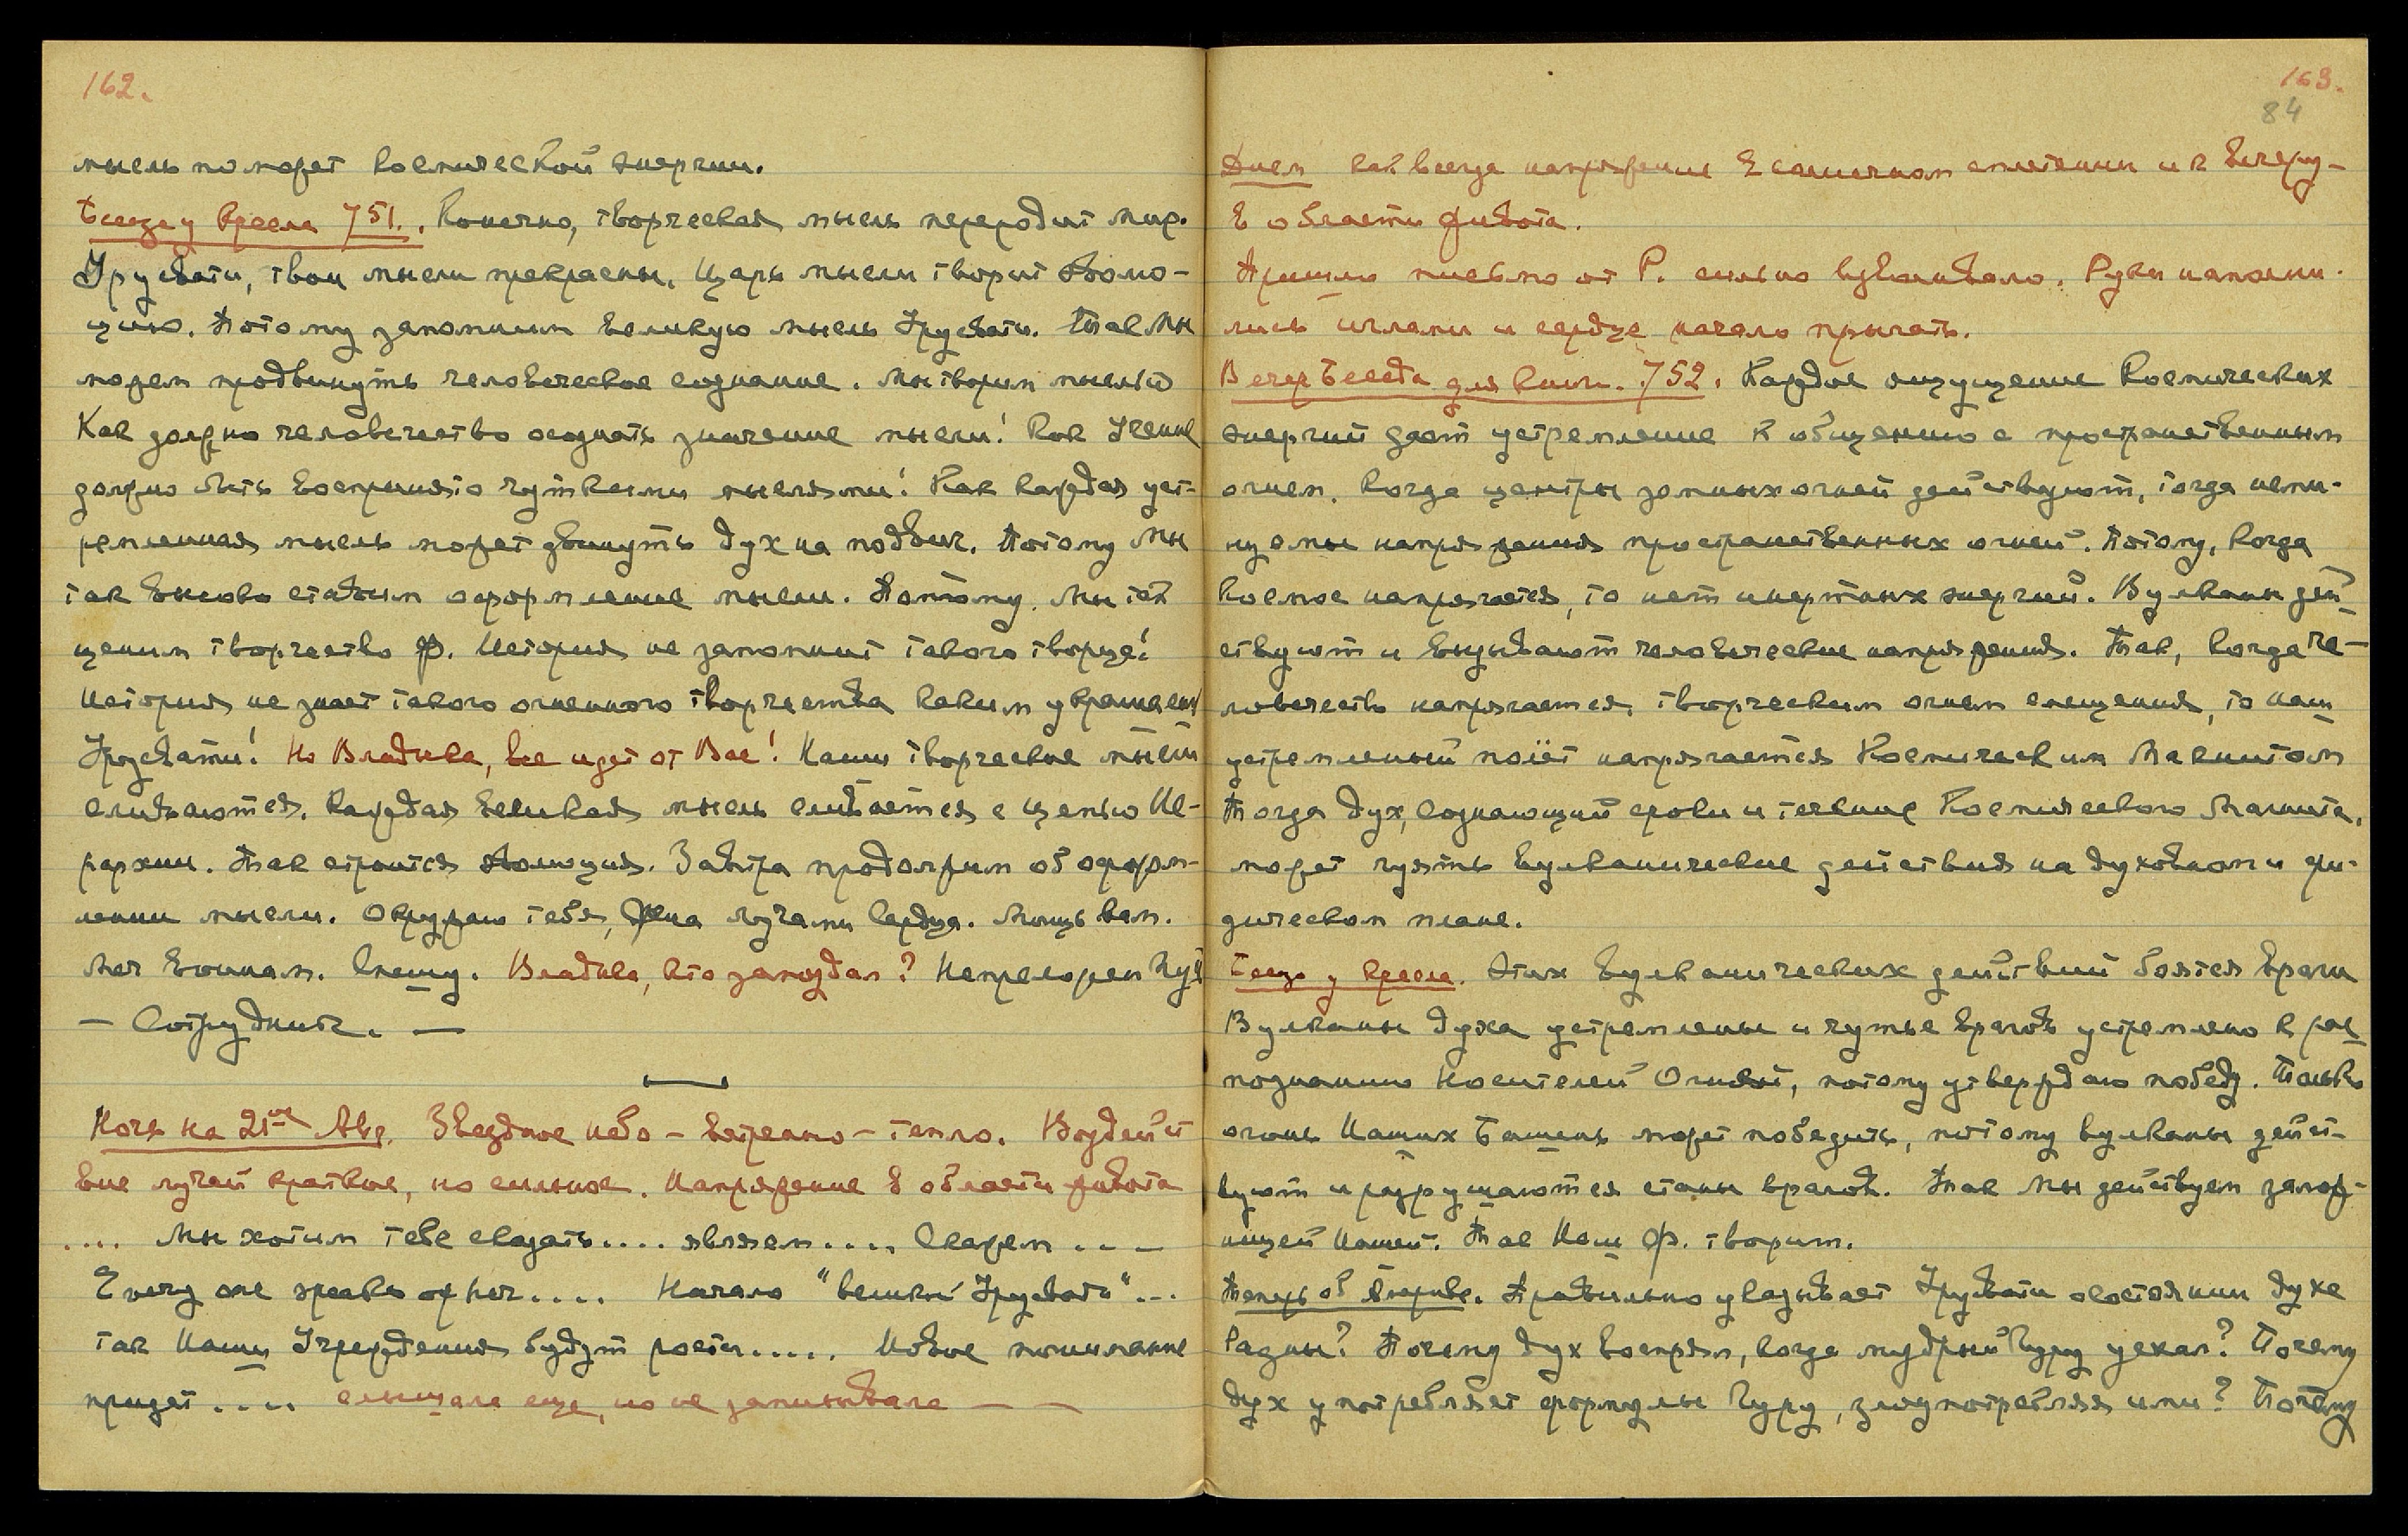 162.
мысль поможет Космической энергии.
Беседа у кресла 751. Конечно, творческая мысль переродит мир.
Урусвати, твои мысли прекрасны, Царь мысли творит эволю-
цию. Потому запомним великую мысль Урусвати. Так Мы
можем продвинуть человеческое сознание. Мы творим мыслью
Как должно человечество осознать значение мысли! Как Учение
должно быть воспринято чуткими мыслями! Как каждая уст-
ремленная мысль может двинуть дух на подвиг. Потому Мы
так высоко ставим оформление мысли. Потому Мы так
ценим творчество Ф. История не запомнит такого творца!
История не знает такого огненного творчества каким украшена
Урусвати! Но Владыка, все идет от Вас! Наши творческие мысли
сливаются. Каждая великая мысль сливается с цепью Ие-
рархии. Так строится эволюция. Завтра продолжим об оформ-
лении мысли. Окружаю тебя, Жена лучами Сердца. Мощь вам.
Меч воинам. Спешу. Владыка, кто запоздал? Непреложен Путь
— Сотрудник. —
Ночь на 21ое Авг. Звездное небо – ветрено – тепло. Воздейст
вие лучей краткое, но сильное. Напряжение в области живота
.... Мы хотим тебе сказать.... являем.... Скажем ....
Every one speaks of her.... Начало "великой Урусвати"...
так Наши Учреждения будут расти..... Новое понимание
придет.... слышала еще, но не записывала — —
163.
84
Днем как всегда напряжение в солнечном сплетении и к вечеру–
в области живота.
Пришло письмо от Р. сильно взволновало. Руки наполни-
лись иглами и сердце начало прыгать.
Вечер Беседа для книги. 752. Каждое ощущение Космических
энергий дает устремление к общению с пространственным
огнем. Когда центры земных огней действуют, тогда неми-
нуемы напряжения пространственных огней. Потому, когда
космос напрягается, то нет инертных энергий. Вулканы дей
ствуют и вызывают человеческие напряжения. Так, когда че-
ловечество напрягается творческим огнем смещения, то наш
устремленный полет напрягается Космическим Магнитом
Тогда дух, сознающий сроки и течение Космического Магнита,
может чуять вулканические действия на духовном и фи-
зическом плане.
Беседа у кресла. Этих вулканических действий боятся враги
Вулканы духа устремлены и чутье врагов устремлено к рас
познанию Носителей Огней, потому утверждаю победу. Только
огонь Наших Башень может победить, потому вулканы дейст-
вуют и разрушаются станы врагов. Так Мы действуем
нашей. Так Наш Ф. творит.
Теперь об Правильно указывает Урусвати о состоянии духа
Радны? Почему дух воспрял, когда мудрый Гуру уехал? Почему
дух употребляет формулы Гуру, злоупотребляя ими? Почему